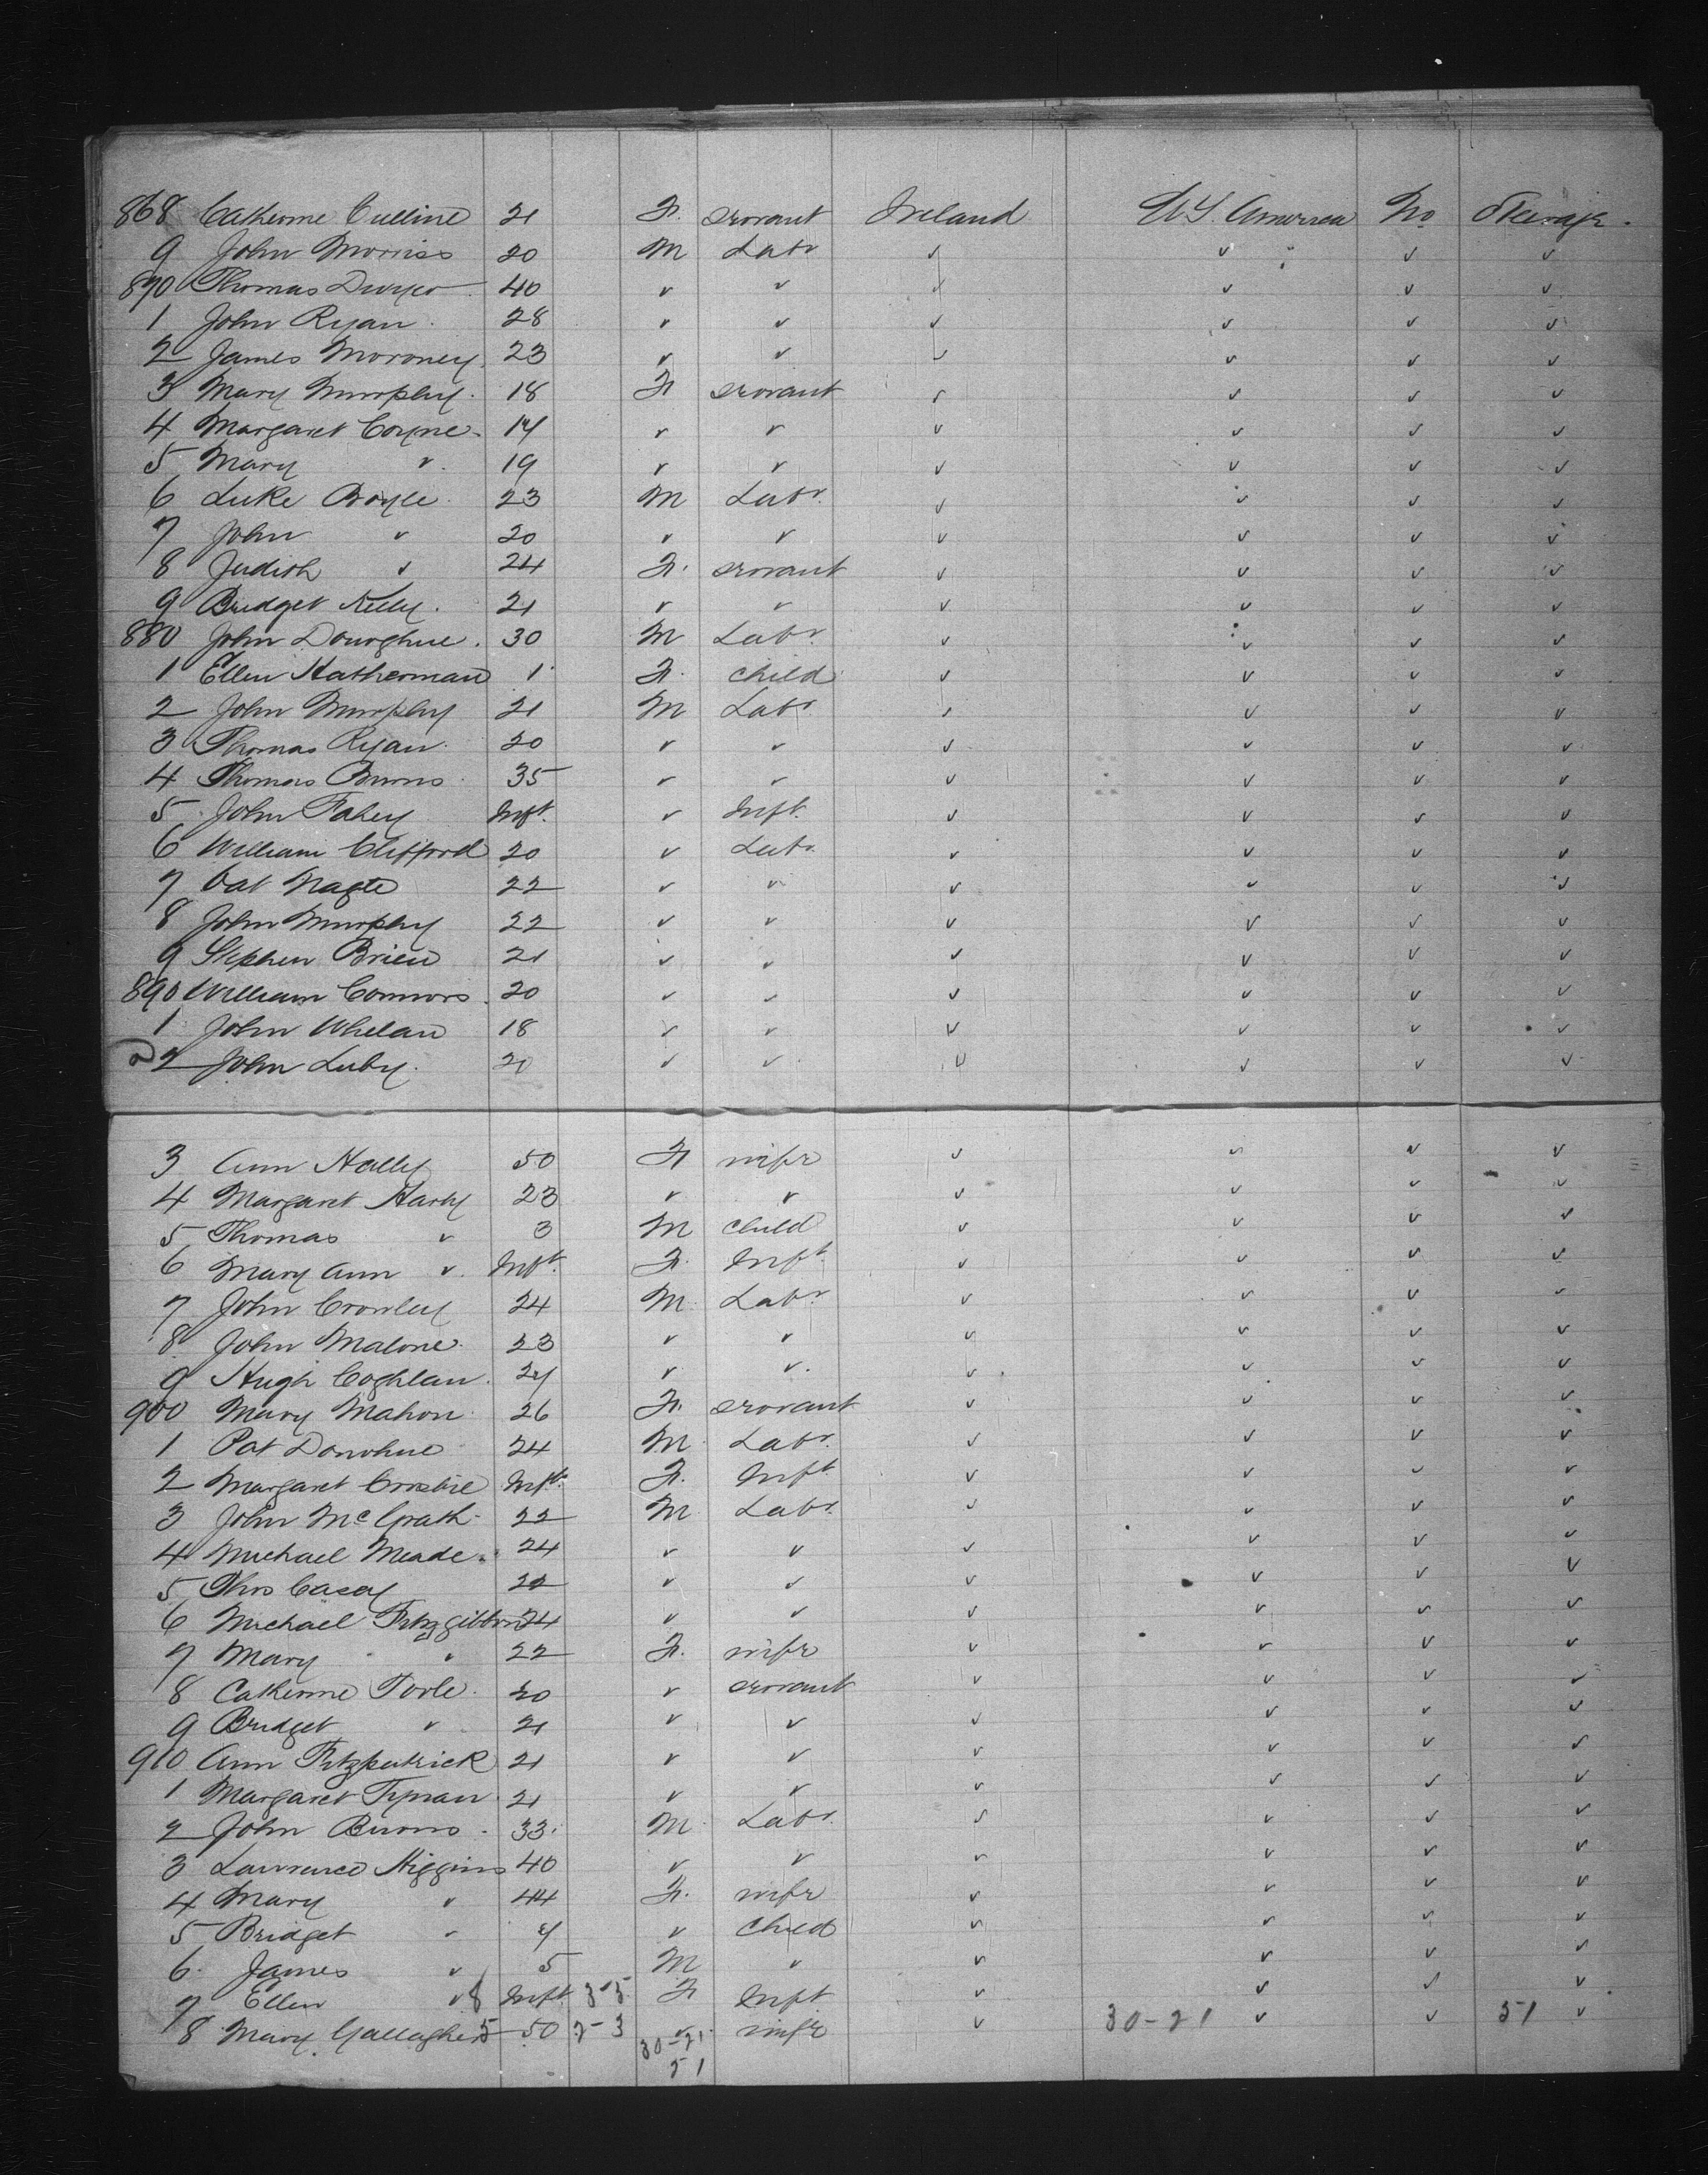 868 Catherine Culline 21 F. servant Ireland U S. America No Steerage.
9 John Morriss 20 M Labr ✓ ✓ " ✓ ✓
870 Thomas Dwyer 40 ✓ ✓ ✓ ✓ ✓ ✓
1 John Ryan. 28 ✓ ✓ ✓ ✓ ✓ ✓
2 James Moroney. 23 ✓ ✓ ✓ ✓ ✓ ✓
3 Mary Murphy. 18 F servant ✓ ✓ ✓ ✓
4 Margaret Coyne. 17 ✓ ✓ ✓ ✓ ✓ ✓
5 Mary ✓. 19 ✓ ✓ ✓ ✓ ✓ ✓
6 Luke Boyle. 23 M Labr. ✓ ✓ ✓ ✓
7 John ✓ 20 ✓ ✓ ✓ ✓ ✓ ✓
8 Judith ✓ 24 F. servant ✓ ✓ ✓ ✓
9 Bridget Kelly. 21 ✓ ✓ ✓ ✓ ✓ ✓
880 John Donoghue. 30 M Labr ✓ ✓ ✓ ✓
1 Ellen Hatherman 1 F. child ✓ ✓ ✓ ✓
2 John Murphy 21 M Labr ✓ ✓ ✓ ✓
3 Thomas Ryan. 20 ✓ ✓ ✓ ✓ ✓ ✓
4 Thomas Burns. 35 ✓ ✓ ✓ ✓ ✓ ✓
5 John Fahey Inft. ✓ Inft. ✓ ✓ ✓ ✓
6 William Clifford 20 ✓ Labr. ✓ ✓ ✓ ✓
7 Pat Nagle 22 ✓ ✓ ✓ ✓ ✓ ✓
8 John Murphy 22 ✓ ✓ ✓ ✓ ✓ ✓
9 Stephen Brien 21 ✓ ✓ ✓ ✓ ✓ ✓
890 William Connors. 20 ✓ ✓ ✓ ✓ ✓ ✓
1 John Whelan 18 ✓ ✓ ✓ ✓ ✓ ✓
2 John Luby. 20 ✓ ✓ ✓ ✓ ✓ ✓
3 Ann Hally 50 F wife ✓ ✓ ✓ ✓
4 Margaret Harty 23 ✓ ✓ ✓ ✓ ✓ ✓
5 Thomas ✓ 3 M child ✓ ✓ ✓ ✓
6 Mary Ann ✓. Inft. F. Inft ✓ ✓ ✓ ✓
7 John Crowley 24 M. Labr. ✓ ✓ ✓ ✓
8 John Malone. 23 ✓ ✓ ✓ ✓ ✓ ✓
9 Hugh Coghlan. 27 ✓ ✓. ✓ ✓ ✓ ✓
900 Mary Mahon 26 F. servant ✓ ✓ ✓ ✓
1 Pat Donohue 24 M. Labr. ✓ ✓ ✓ ✓
2 Margaret Crosbie Inft. F. Inft. ✓ ✓ ✓ ✓
3 John McGrath 22 M Labr. ✓ ✓ ✓ ✓
4 Michael Meade. 24 ✓ ✓ ✓ ✓ ✓ ✓
5 Thos Casey 22 ✓ ✓ ✓ ✓ ✓ ✓
6 Michael Fitzgibbon 24 ✓ ✓ ✓ ✓ ✓ ✓
7 Mary " 22 F. wife ✓ ✓ ✓ ✓
8 Catherine Toole. 20 ✓ servant ✓ ✓ ✓ ✓
9 Bridget ✓ 21 ✓ ✓ ✓ ✓ ✓ ✓
910 Ann Fitzpatrick 21 ✓ ✓ ✓ ✓ ✓ ✓
1 Margaret 21 ✓ ✓ ✓ ✓ ✓ ✓
2 John Burns. 33. M. Labr. ✓ ✓ ✓ ✓
3 Lawrence Higgins 40 ✓ ✓ ✓ ✓ ✓ ✓
4 Mary ✓ 44 F. wife ✓ ✓ ✓ ✓
5 Bridget ✓ 7 ✓ child ✓ ✓ ✓ ✓
6. James ✓ 5 M ✓ ✓ ✓ ✓ ✓
7 Ellen ✓ 8 Inft. 3-5 F Inft ✓ ✓ ✓ ✓
8 Mary Gallagher 5 50 2-3 ✓ wife ✓ 30-21 ✓ ✓ 51 ✓
30-21
51